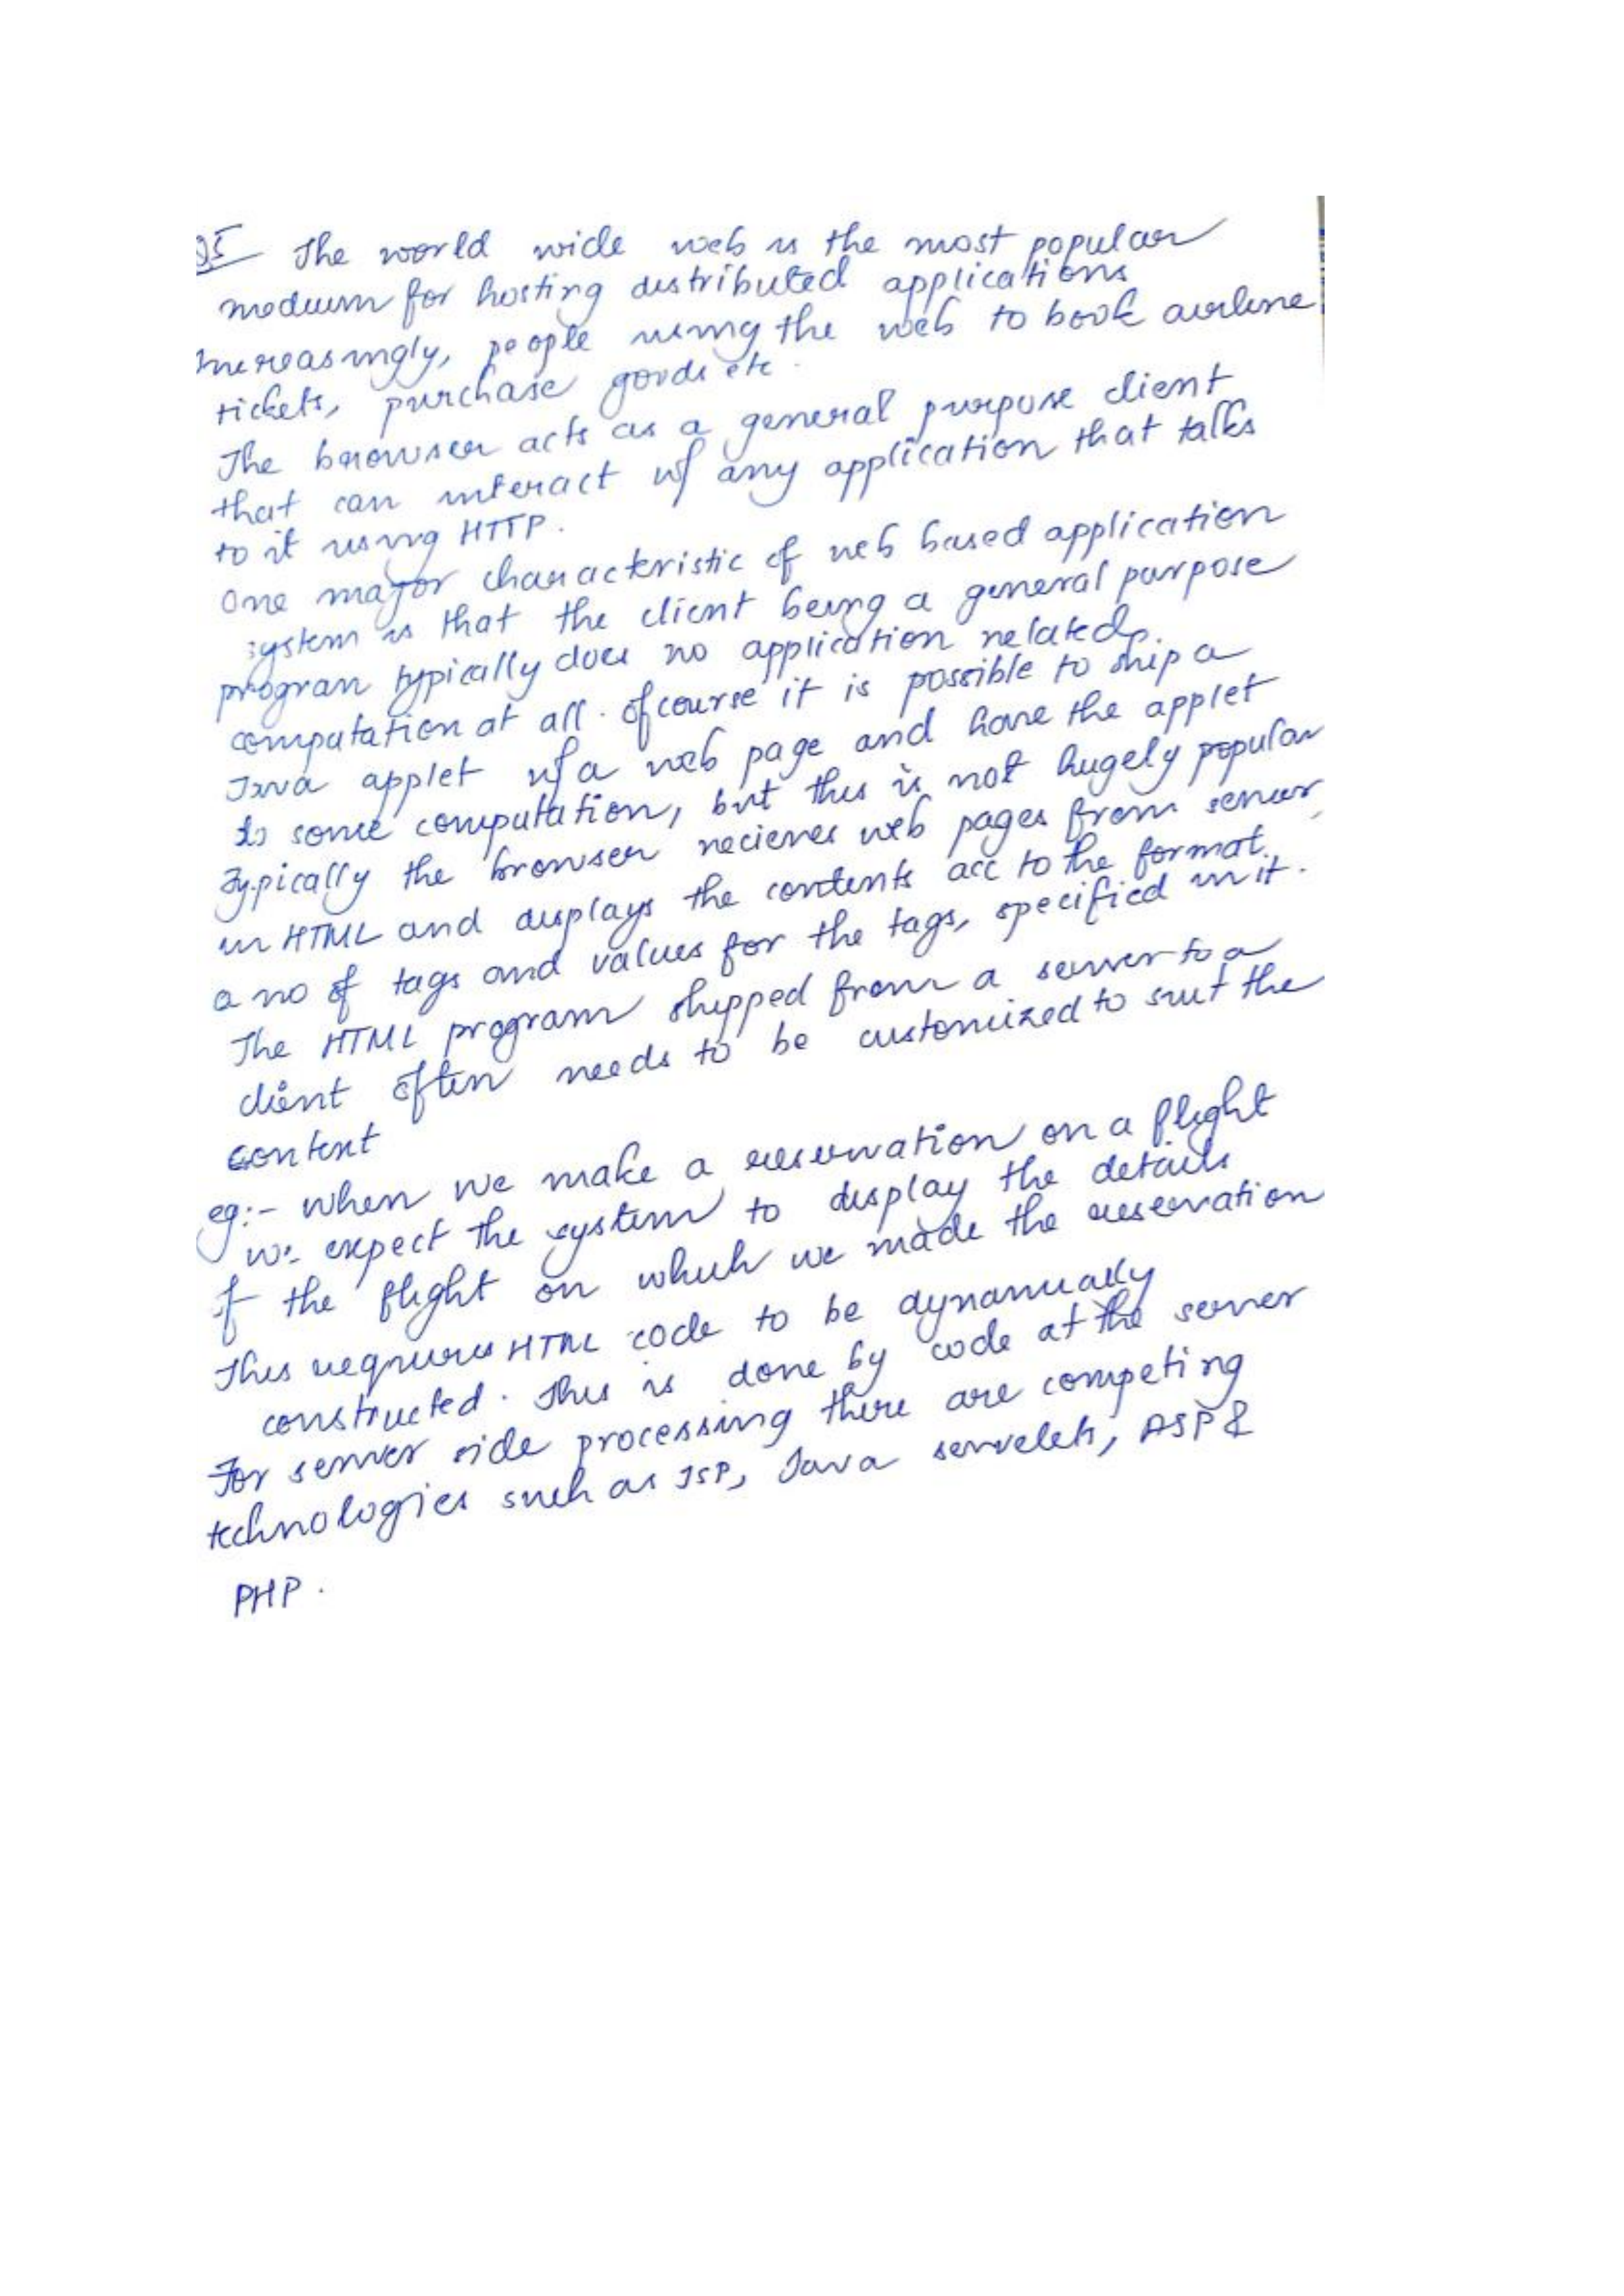 Q5 The world wide web is the most popular
medium for hosting distributed applications
Increasingly, people using the web to book airline
tickets, purchase goods etc.
The browser acts as a general purpose client
that can interact w/ any application that talks
to it using HTTP.
One major characteristic of web based application
system is that the client being a general purpose
program typically does no application related
computation at all. Of course it is possible to ship a
Java applet w/ a web page and have the applet
do some computation, but this is not hugely popular
Typically the browser recieves web pages from server,
in HTML and displays the contents acc to the format.
a no of tags and values for the tags, specified in it.
The HTML program shipped from a server to a
client often needs to be customized to suit the
context
eg:- when we make a reservation on a flight
we expect the system to display the details
of the flight on which we made the reservation
This requires HTML code to be dynamically
constructed. This is done by code at the server
For server side processing there are competing
technologies such as JSP, Java servelets, ASP &
PHP.